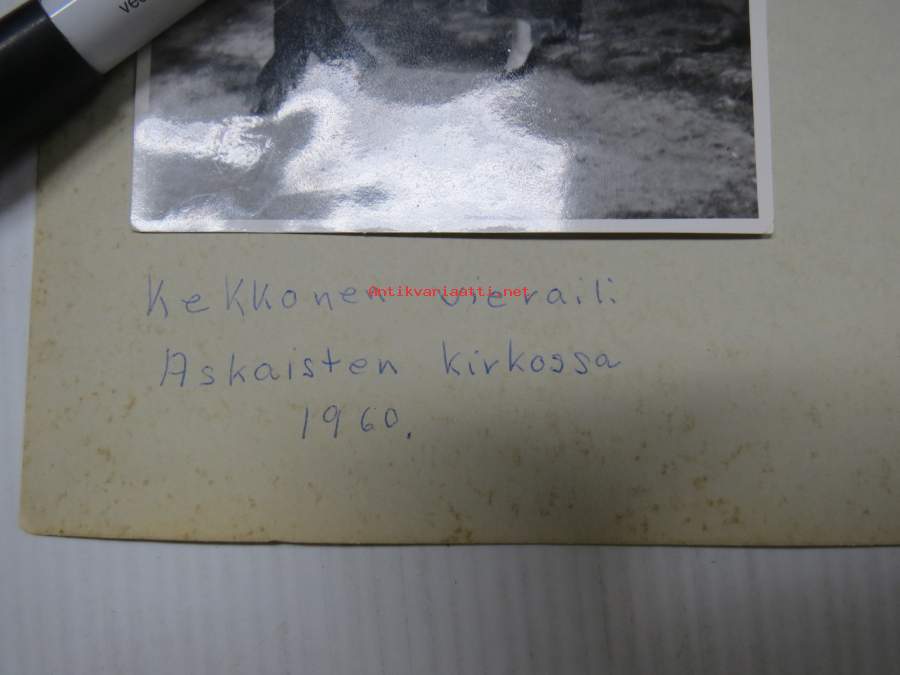 Kekkonen vieraili
Antikvariaatti.net
Askaisten kirkossa
1960.